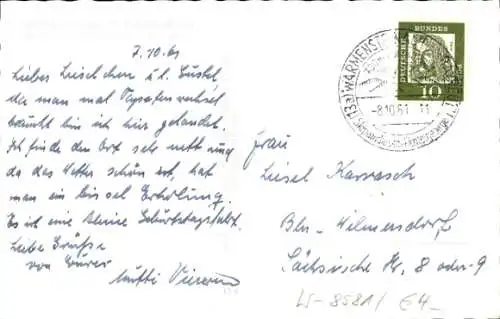 7.10.61
Liebes Lieselchen u. l. Gustel,
da man mal Tapetenwechsel
braucht bin ich hier gelandet.
Ich finde den Ort sehr nett und
da das Wetter schön ist, hat
man ein bissel Erholung.
Es ist eine kleine Geburtstagsfahrt.
Liebe Grüsse
von Eurer
DEUTSCHE BUNDES
10
-8.10.61-11
Frau
Liesel Karrasch
Bln-Wilmersdorf
Sächsische Str. 8 oder 9
LS-8581/ €4-